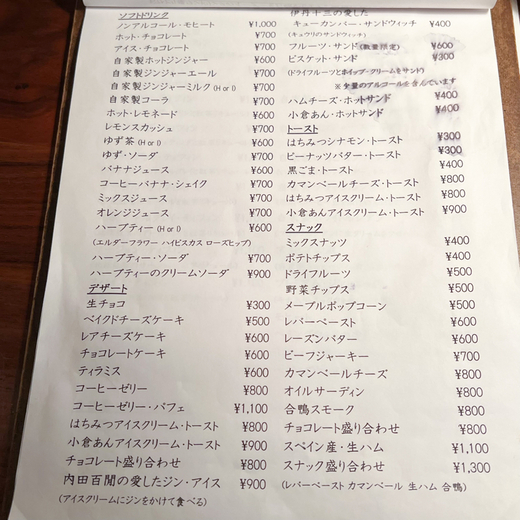 ソフトドリンク
ノンアルコール・モヒート ¥1,000
ホット・チョコレート ¥700
アイス・チョコレート ¥700
自家製ホットジンジャー ¥600
自家製ジンジャーエール ¥700
自家製ジンジャーミルク(H or I) ¥700
自家製コーラ ¥700
ホット・レモネード ¥600
レモンスカッシュ ¥700
ゆず茶(H or I) ¥600
ゆず・ソーダ ¥700
バナナジュース ¥600
コーヒーバナナ・シェイク ¥700
ミックスジュース ¥700
オレンジジュース ¥700
ハーブティー(H or I) ¥600
(エルダーフラワー ハイビスカス ローズヒップ)
ハーブティー・ソーダ ¥700
ハーブティーのクリームソーダ ¥900
デザート
生チョコ ¥300
ベイクドチーズケーキ ¥500
レアチーズケーキ ¥600
チョコレートケーキ ¥600
ティラミス ¥600
コーヒーゼリー ¥800
コーヒーゼリー・パフェ ¥1,100
はちみつアイスクリーム・トースト ¥800
小倉あんアイスクリーム・トースト ¥900
チョコレート盛り合わせ ¥800
内田百閒の愛したジン・アイス ¥900
(アイスクリームにジンをかけて食べる)
伊丹十三の愛した
キューカンバー・サンドウィッチ ¥400
(キュウリのサンドウィッチ)
フルーツ・サンド(数量限定) ¥600
ビスケット・サンド ¥300
(ドライフルーツとホイップ・クリームをサンド)
※少量のアルコールを含んでいます
ハムチーズ・ホットサンド ¥400
小倉あん・ホットサンド ¥400
トースト
はちみつシナモン・トースト ¥300
ピーナッツバター・トースト ¥300
黒ごま・トースト ¥400
カマンベールチーズ・トースト ¥800
はちみつアイスクリーム・トースト ¥800
小倉あんアイスクリーム・トースト ¥900
スナック
ミックスナッツ ¥400
ポテトチップス ¥400
ドライフルーツ ¥500
野菜チップス ¥500
メープルポップコーン ¥500
レバーペースト ¥600
レーズンバター ¥600
ビーフジャーキー ¥700
カマンベールチーズ ¥800
オイルサーディン ¥800
合鴨スモーク ¥800
チョコレート盛り合わせ ¥800
スペイン産・生ハム ¥1,100
スナック盛り合わせ ¥1,300
(レバーペースト カマンベール 生ハム 合鴨)